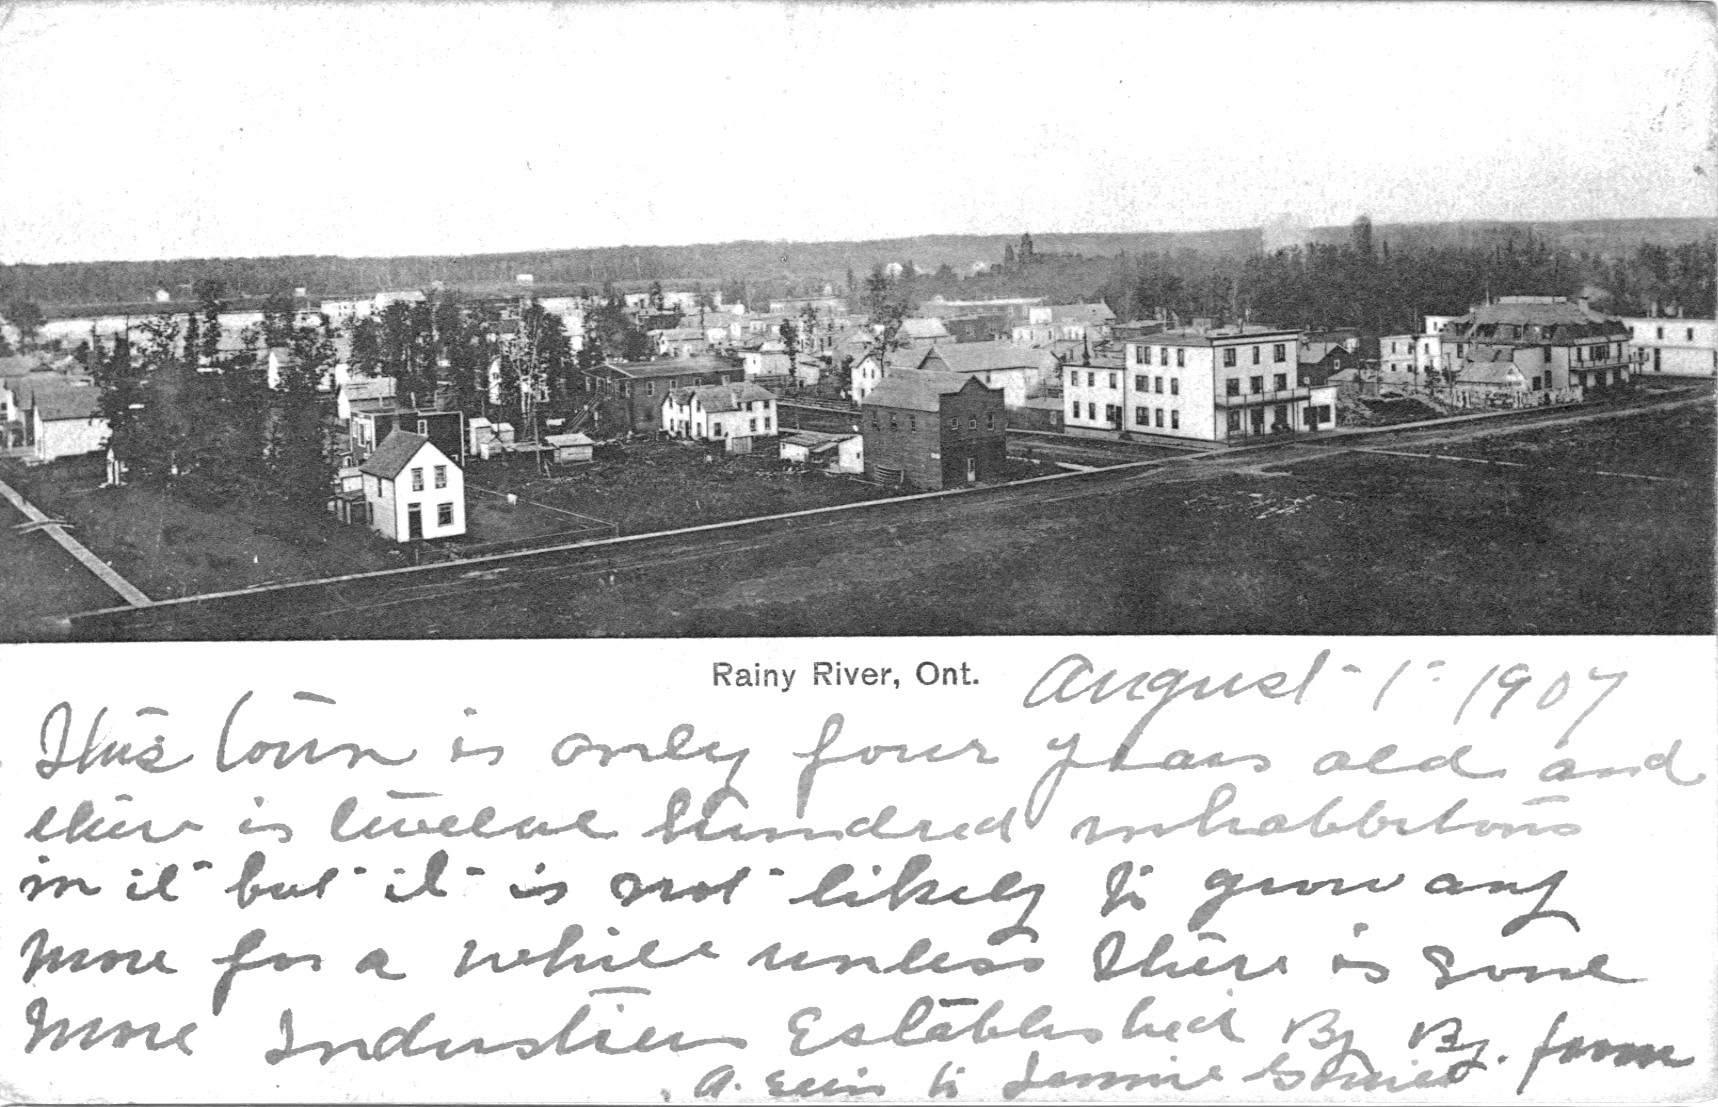 Rainy River, Ont.
August 1 1907
This town is only four years old and
there is twelve hundred inhabbitons
in it but it is not likely to grow any
more for a while unless there is some
more Industries Established By By. from
A. to Jennie